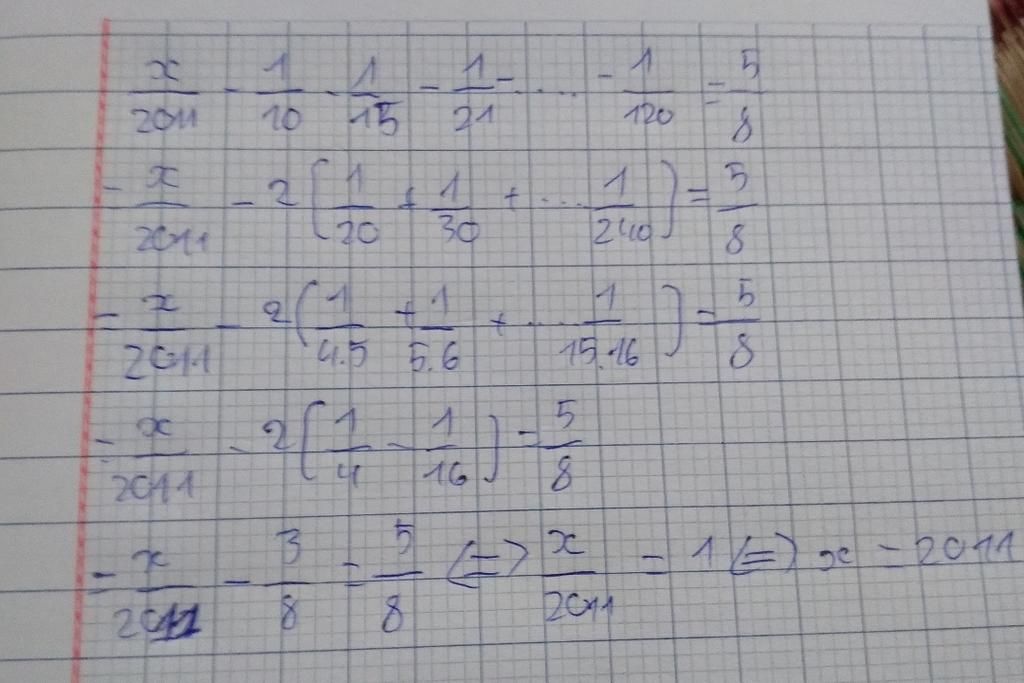 x/2011 - 1/10 - 1/15 - 1/21 - .... - 1/120 = 5/8
= x/2011 - 2[1/20 + 1/30 + ... 1/240] = 5/8
= x/2011 - 2(1/4.5 + 1/5.6 + ... 1/15.16) = 5/8
= x/2011 - 2[1/4 - 1/16] = 5/8
= x/2011 - 3/8 = 5/8 (=) x/2011 = 1 (=) x = 2011